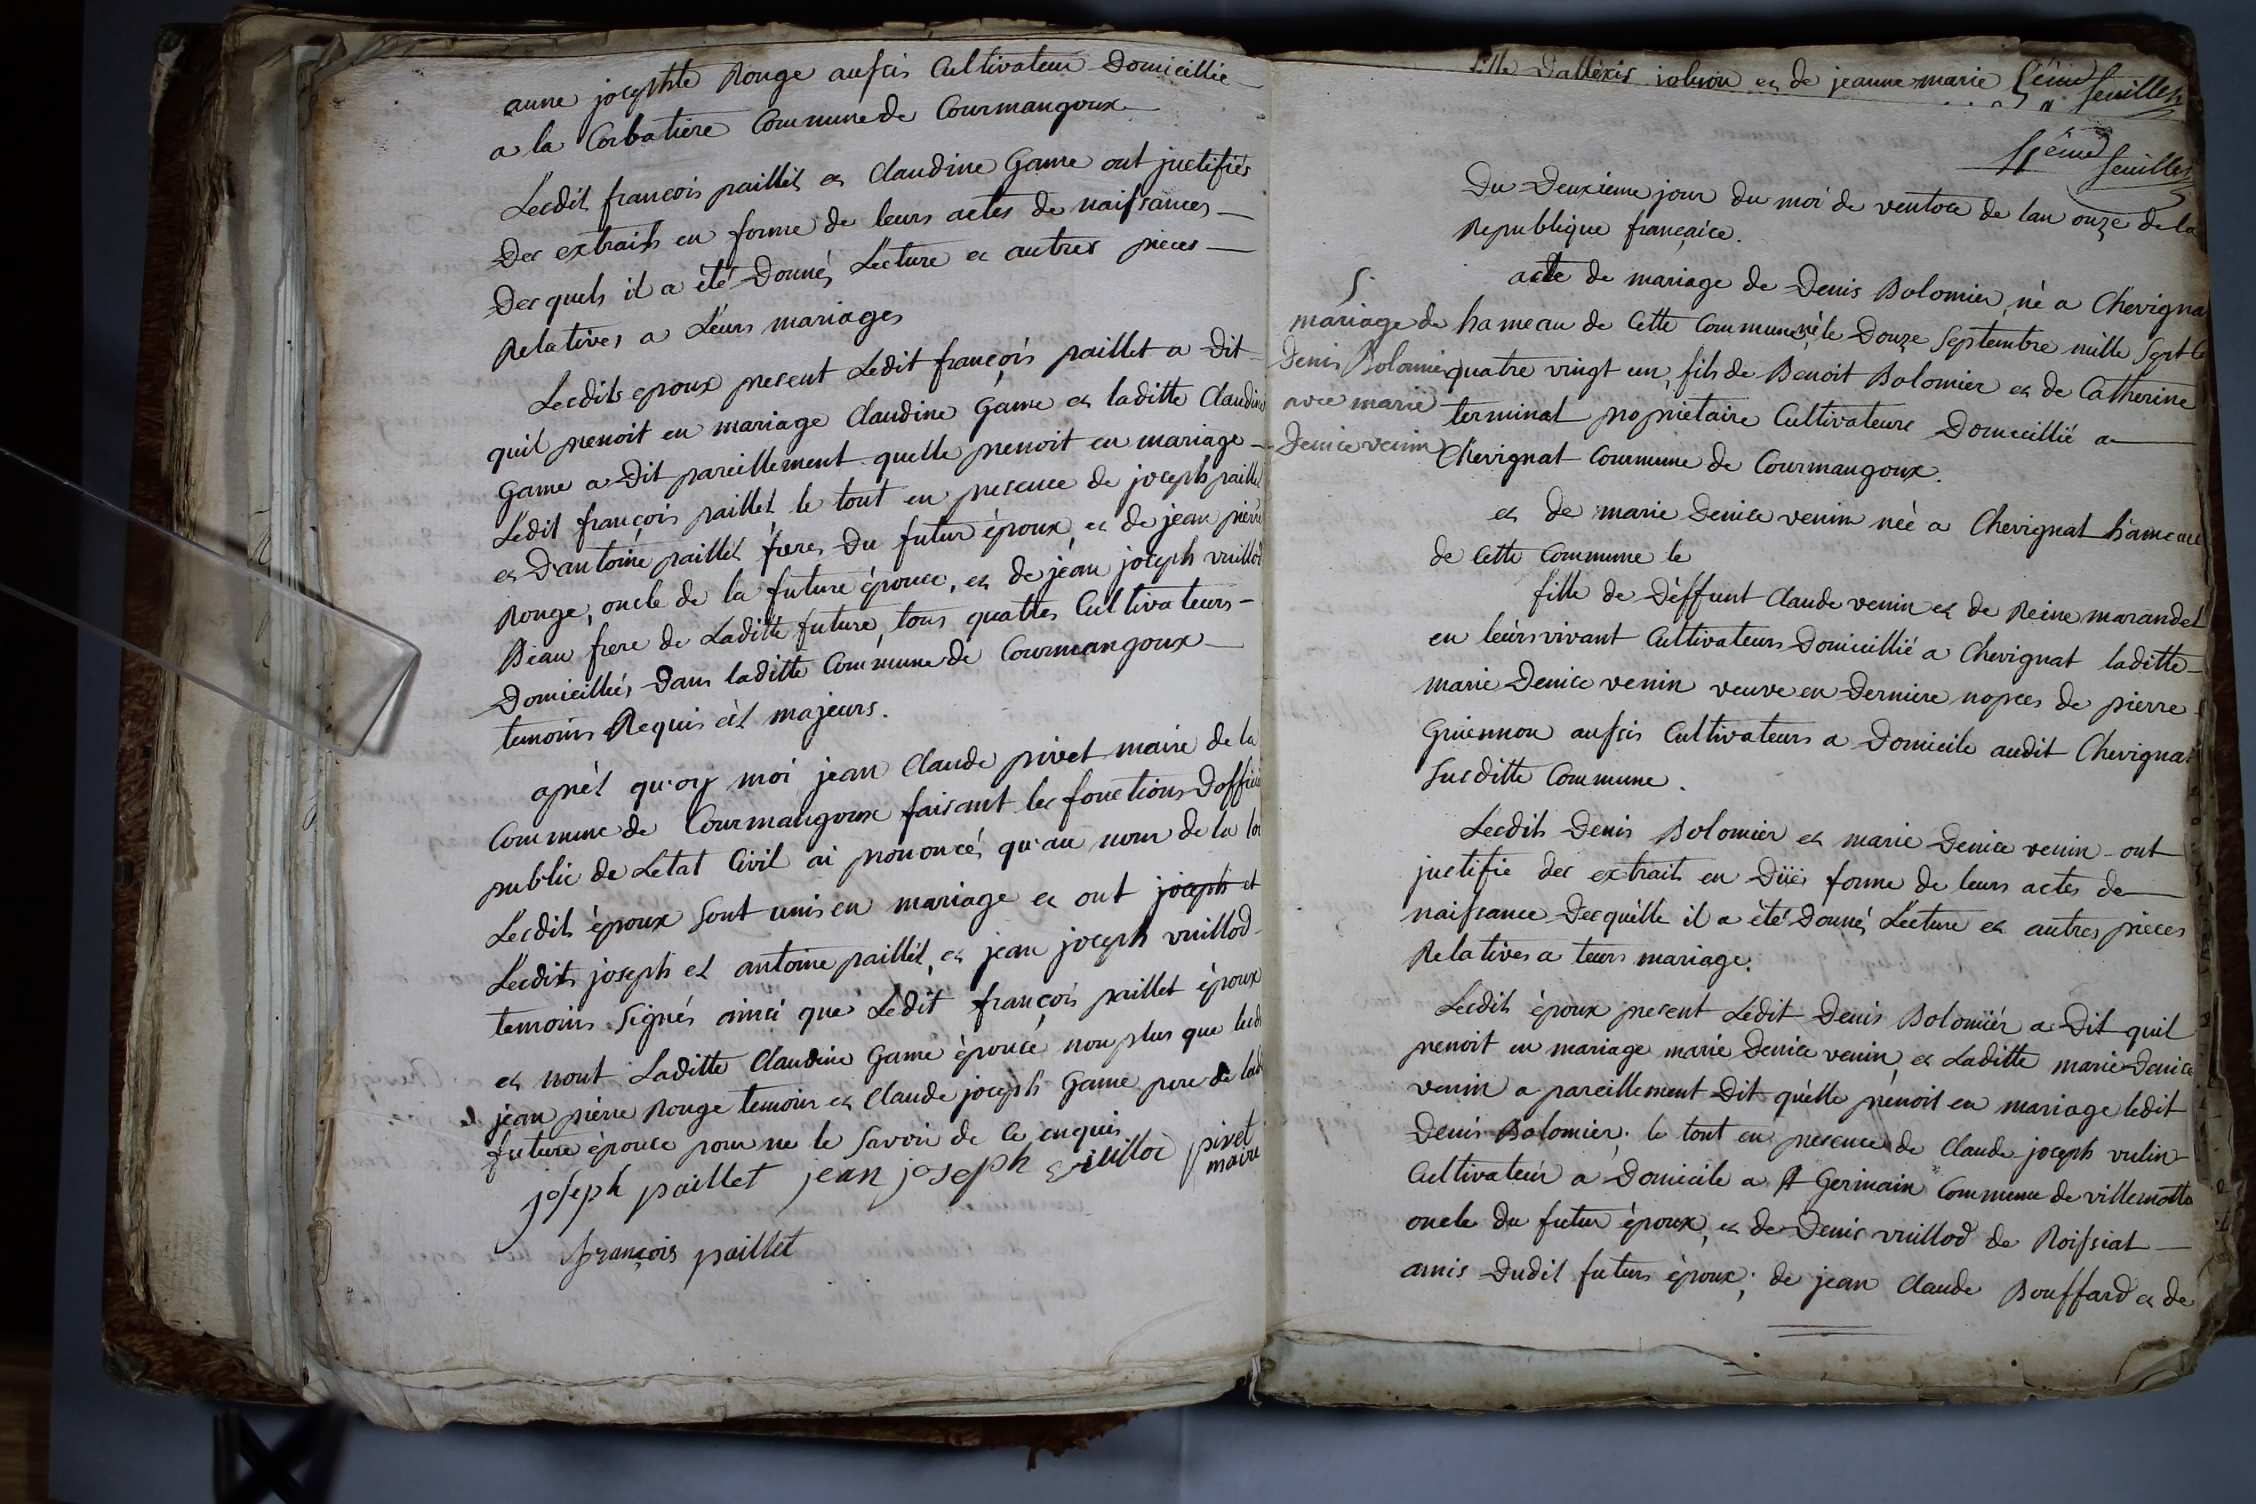 anne josephte Rouge aussis Cultivateur Domicillié
a la Corbatiere Commune de Courmangoux
Lesdit francois paillet et Claudine Game ont justifiés
Des extraits en forme de leurs actes de naissances
Desquels il a été Donnés Lecture et autres pieces
Relatives a Leurs mariages
Lesdits epoux present Ledit françois paillet a Dit
quil prenoit en mariage Claudine Game et laditte Claudine
Game a Dit pareillement quelle prenoit en mariage
Ledit françois paillet le tout en presence de joseph paillet
et D'antoine paillet freres Du futur époux, et de jean pierre
Rouge, oncle de la future épouce, et de jean joseph vuillod
Beau frere de Laditte future, tous quattres Cultivateurs
Domicilliés Dans laditte Commune de Courmangoux
temoins Requis èt majeurs.
aprét qu'oy moi jean Claude pivet maire de la
Commune de Courmangoux faisant les fonctions Dofficier
public de Letat Civil ai prononcés qu'au nom de la loi
Lesdits époux Sont unis en mariage et ont joseph et
Lesdits joseph et antoine paillet, et jean joseph vuillod
temoins Signés ainsi que Ledit françois paillet époux
et nont Laditte Claudine Game épouce non plus que led
jean pierre Rouge temoin et Claude joseph Game pere de lad
future épouce pour ne le Savoir de ce enquis
joseph paillet jean joseph vuillod pivet
maire
françois paillet
fille Dallexis jolivon et de jeanne marie
feuillet
5ème
feuillet
Du Deuxieme jour du moi de ventose de lan onze de la
Republique françaice.
5.
mariage de
Denis Bolomier
avec marie
Denice venin
acte de mariage de Denis Bolomier, né a Chevigna
hameau de Cette Commune né le Douze Septembre mille Sept Ce
quatre vingt un, fils de Benoit Bolomier et de Catherine
terminat propriétaire Cultivateurs Domicillié a
Chevignat Commune de Courmangoux.
et de marie Denice venin née a Chevignat hameau
de Cette Commune le
fille de Déffunt Claude venin et de Reine marandet
en leurs vivant Cultivateurs Domicillié a Chevignat laditte
marie Denice venin veuve en Derniere nopces de pierre
Gruennon aussis Cultivateurs a Domicile audit Chevignat
Susditte Commune.
Lesdits Denis Bolomier et marie Denice venin ont
justifie des extraits en Düe forme de leurs actes de
naissance Desquélle il a été Donnés Lecture et autres pieces
Relatives a leurs mariage.
Lesdits époux present Ledit Denis Bolomiér a Dit quil
prenoit en mariage marie Denice venin, et Laditte marie Denice
venin a pareillement Dit quélle prénoit en mariage ledit
Denis Bolomier. le tout en presence de Claude joseph vulin
Cultivateur a Domicile a St Germain Commune de villemotte
oncle du futur époux, et de Denis vuillod de Roissiat
amis Dudit futurs époux; de jean Claude Bouffard et de